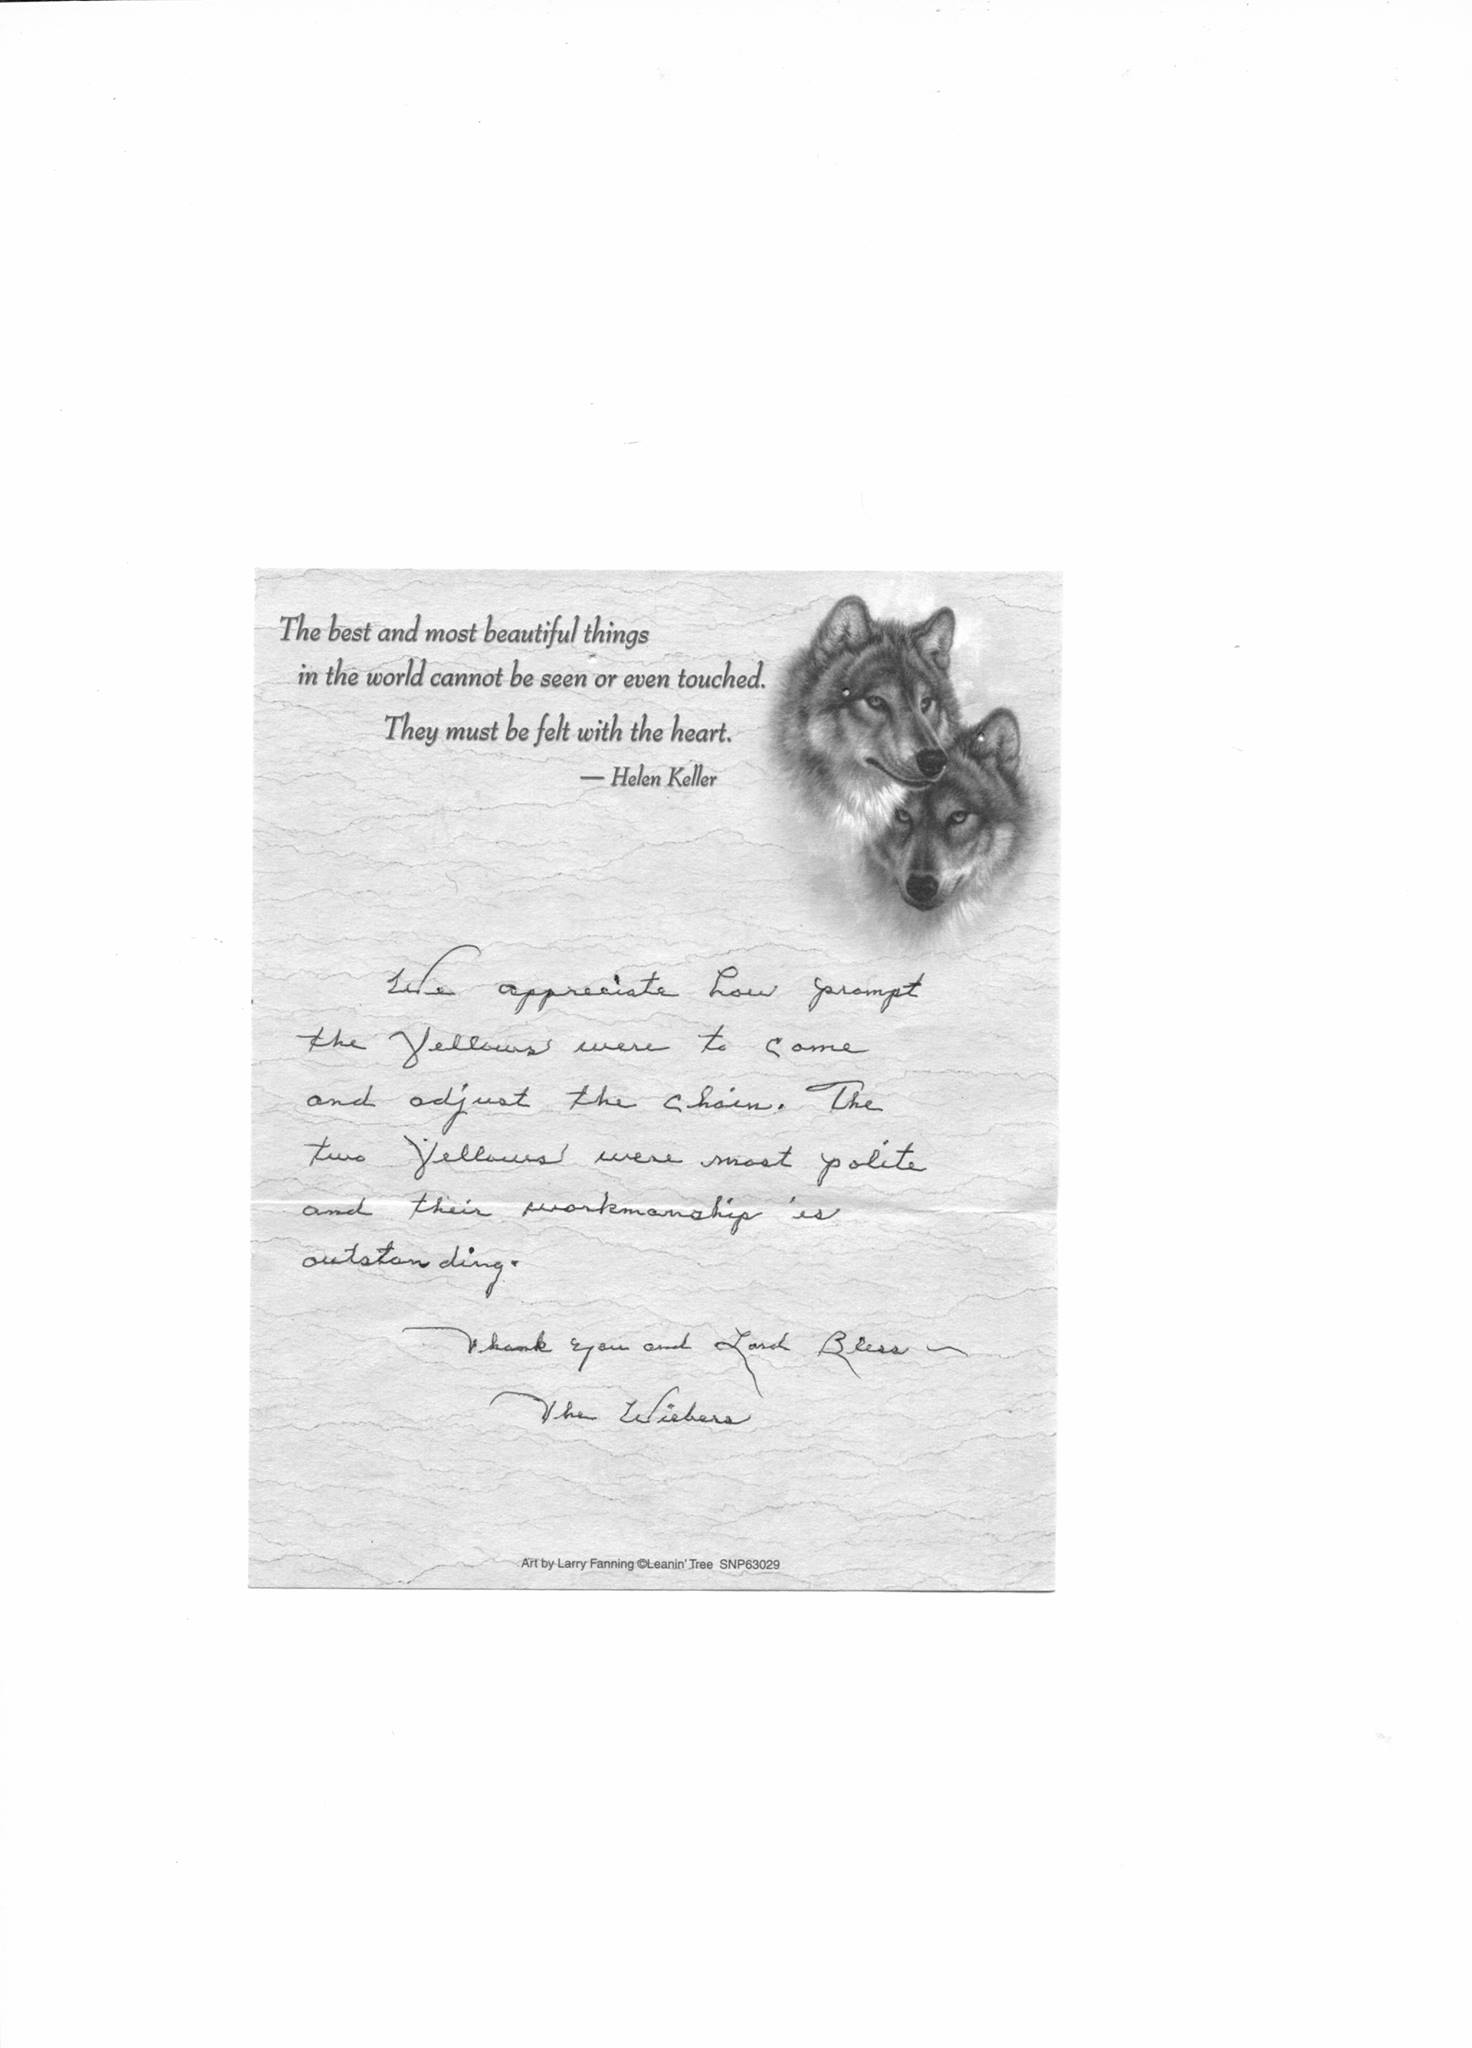 The best and most beautiful things
in the world cannot be seen or even touched.
They must be felt with the heart.
— Helen Keller
We appreciate how prompt
the Yellows were to come
and adjust the chain. The
two Yellows were most polite
and their workmanship is
outstanding.
Thank you and Lord Bless ~
The Wiebers
Art by Larry Fanning ©Leanin' Tree SNP63029